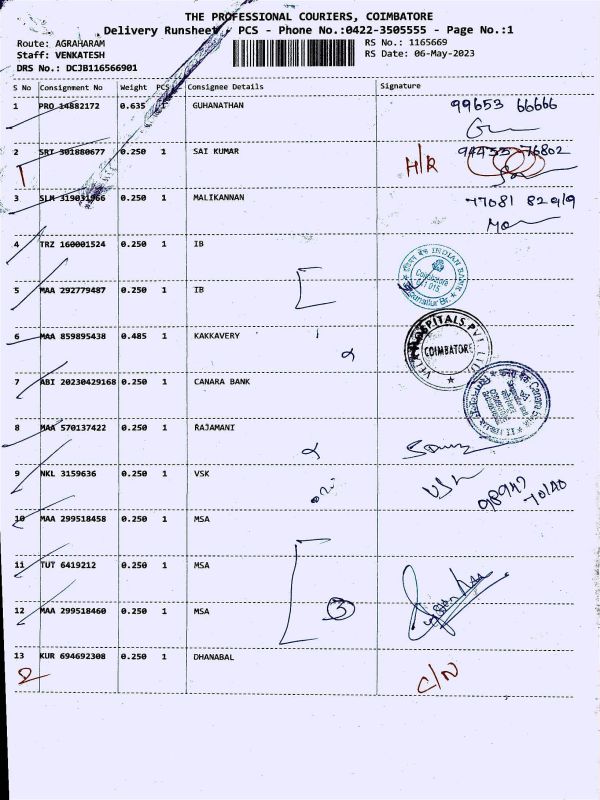 THE PROFESSIONAL COURIERS, COIMBATORE
Delivery Runsheet / PCS - Phone No.:0422-3505555 - Page No.:1
Route: AGRAHARAM
Staff: VENKATESH
DRS No.: DCJB116566901
RS No.: 1165669
RS Date: 06-May-2023
S No Consignment No Weight PCS Consignee Details Signature
1 PRO 14882172 0.635 1 GUHANATHAN 99653 66666
2 SRT 301880677 0.250 1 SAI KUMAR H/R
1
3 SLM 0.250 1 MALIKANNAN
4 TRZ 160001524 0.250 1 IB
INDIAN BANK
Coimbatore
5 MAA 292779487 0.250 1 IB
6 MAA 859895438 0.485 1 KAKKAVERY
HOSPITALS PVT. LTD.
COIMBATORE
7 ABI 20230429168 0.250 1 CANARA BANK
Canara
8 MAA 570137422 0.250 1 RAJAMANI
9 NKL 3159636 0.250 1 VSK VSK
10 MAA 299518458 0.250 1 MSA
11 TUT 6419212 0.250 1 MSA
12 MAA 299518460 0.250 1 MSA 3
13 KUR 694692308 0.250 1 DHANABAL
2 C/N